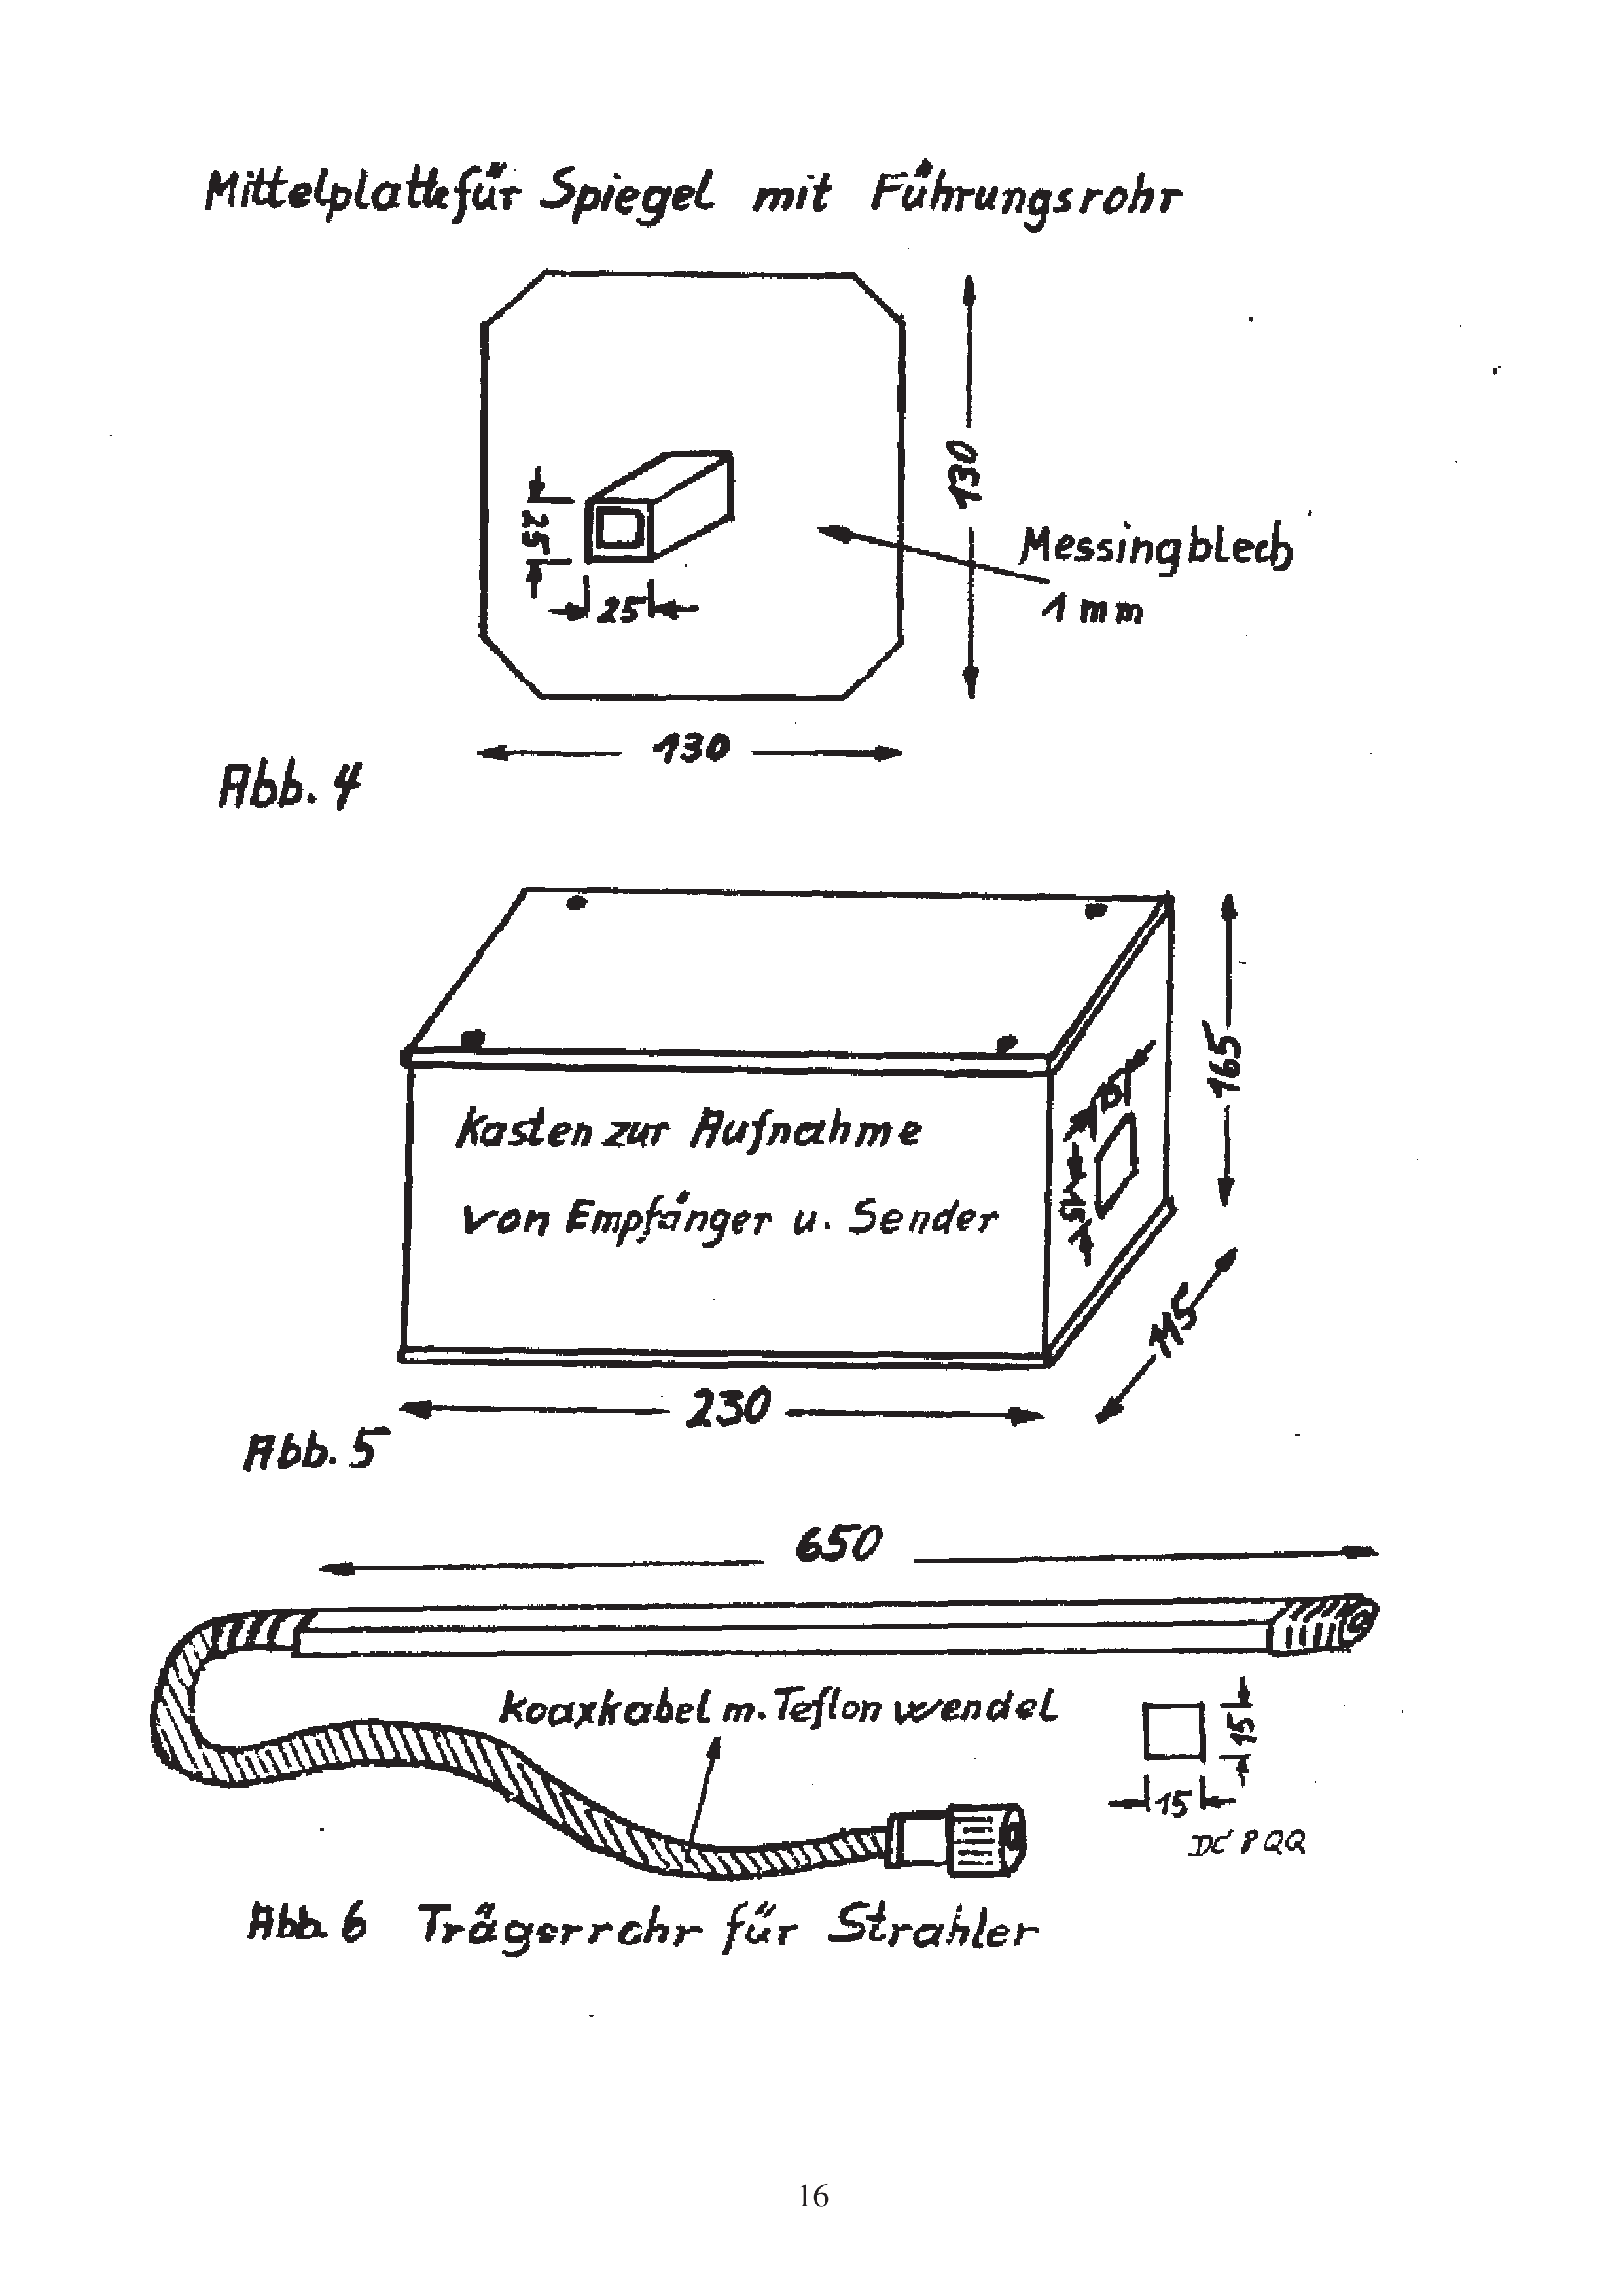 Mittelplatte für Spiegel mit Führungsrohr
130
25
25
Messingblech
1 mm
130
Abb. 4
165
15
Kasten zur Aufnahme
15
von Empfänger u. Sender
115
230
Abb. 5
650
Koaxkabel m. Teflon wendel
15
15
DC 8 QQ
Abb. 6 Trägerrohr für Strahler
16